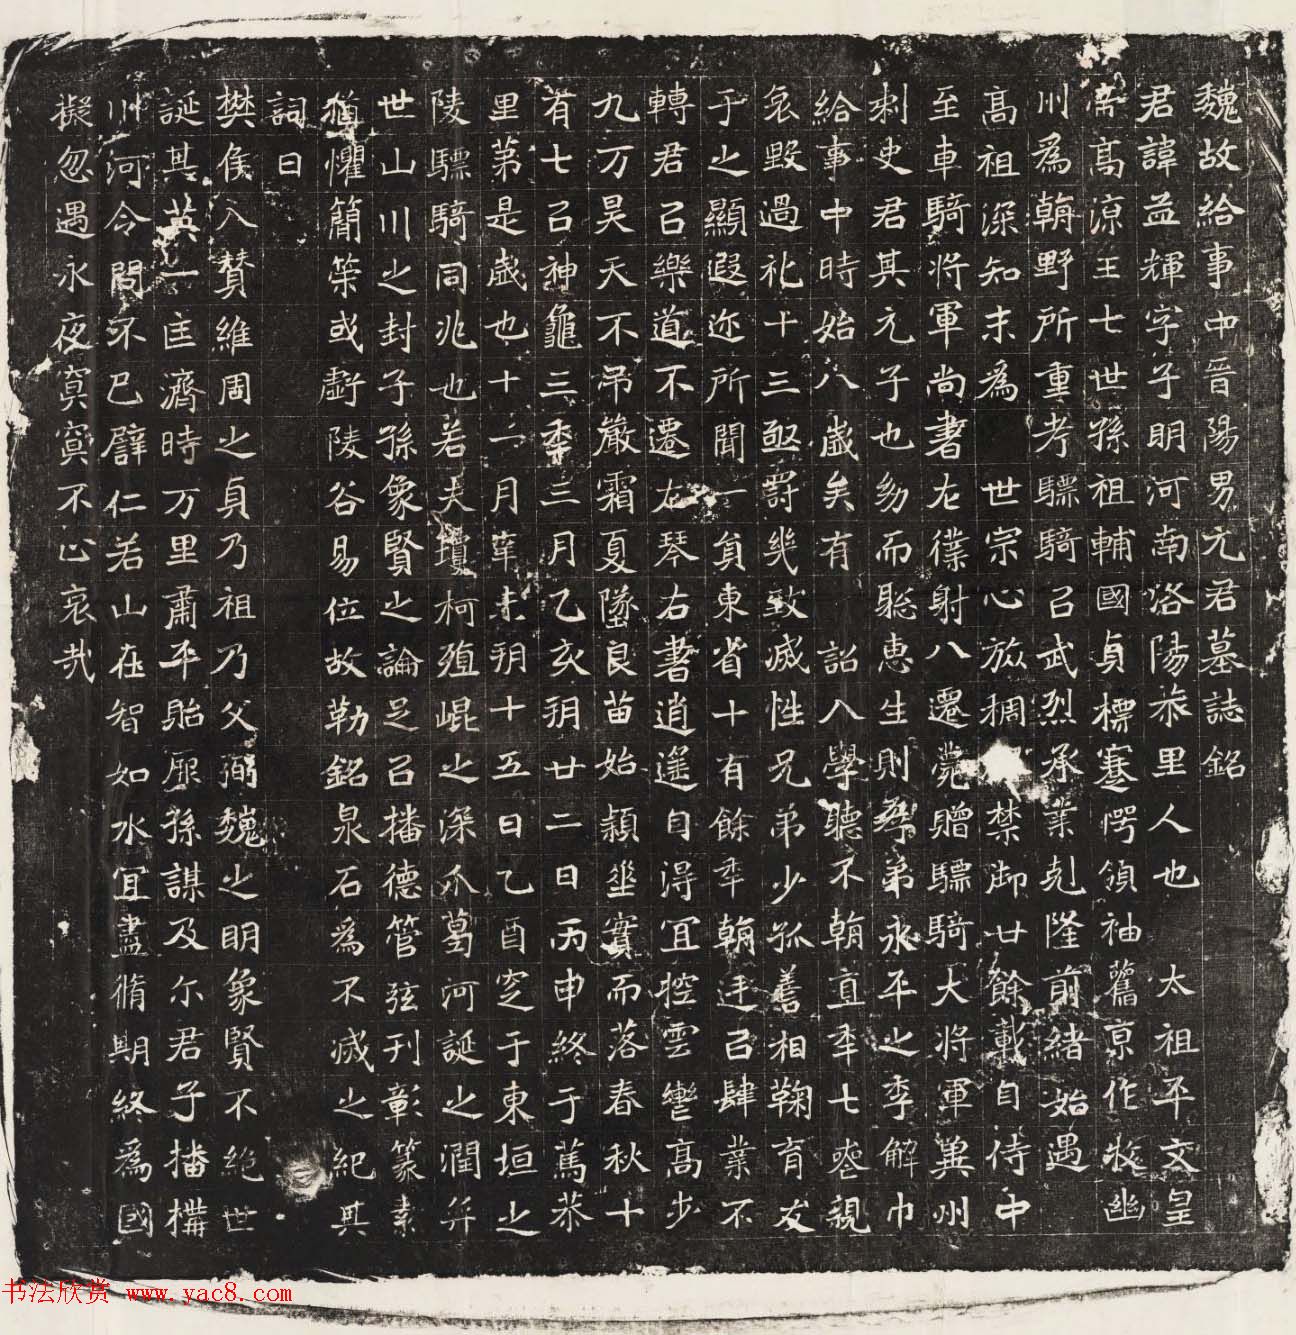 魏故給事中晉陽男元君墓誌銘
君諱益輝字子明河南洛陽恭里人也　太祖平文皇
帝高涼王七世孫祖輔國貞標蹇愕領袖舊京作牧幽
川為朝野所重考驃騎㠯武烈承業剋隆前緒始遇
高祖深知末為　世宗心旅稠　禁御廿餘載自侍中
至車騎將軍尚書左僕射八遷薨贈驃騎大將軍冀州
刾史君其元子也幼而聡惠生則孝弟永平之季解巾
給事中時始八歲矣有　詔入學聽不朝直年七喪親
哀毀過礼十三亟罸幾致滅性兄弟少孤善相鞠育友
于之顯遐迩所聞一負東省十有餘年朝迋㠯肆業不
轉君㠯樂道不遷左琴右書逍遥自淂冝控雲轡高步
九万昊天不弔嚴霜夏墜良苗始穎垂實而落春秋十
有七㠯神龜三季三月乙亥朔廿二日丙申終于篤恭
里苐是歲也十一月辛未朔十五日乙酉窆于東垣之
陵驃騎同兆也若夫瓊柯殖崐之深爪葛河誕之潤弈
世山川之封子孫象賢之論足㠯播德管弦刊彰篆素
猶懼簡榮或虧陵谷易位故勒銘泉石為不滅之紀其
詞曰
樊侯入賛維周之貞乃祖乃父弼魏之明象賢不絶世
誕其英一匡濟時万里肅平貽厥孫謀及尓君子播構
川河令問不已譬仁若山在智如水冝盡脩期終為國
擬忽遇永夜寘寘不心哀哉
书法欣赏 www.yac8.com